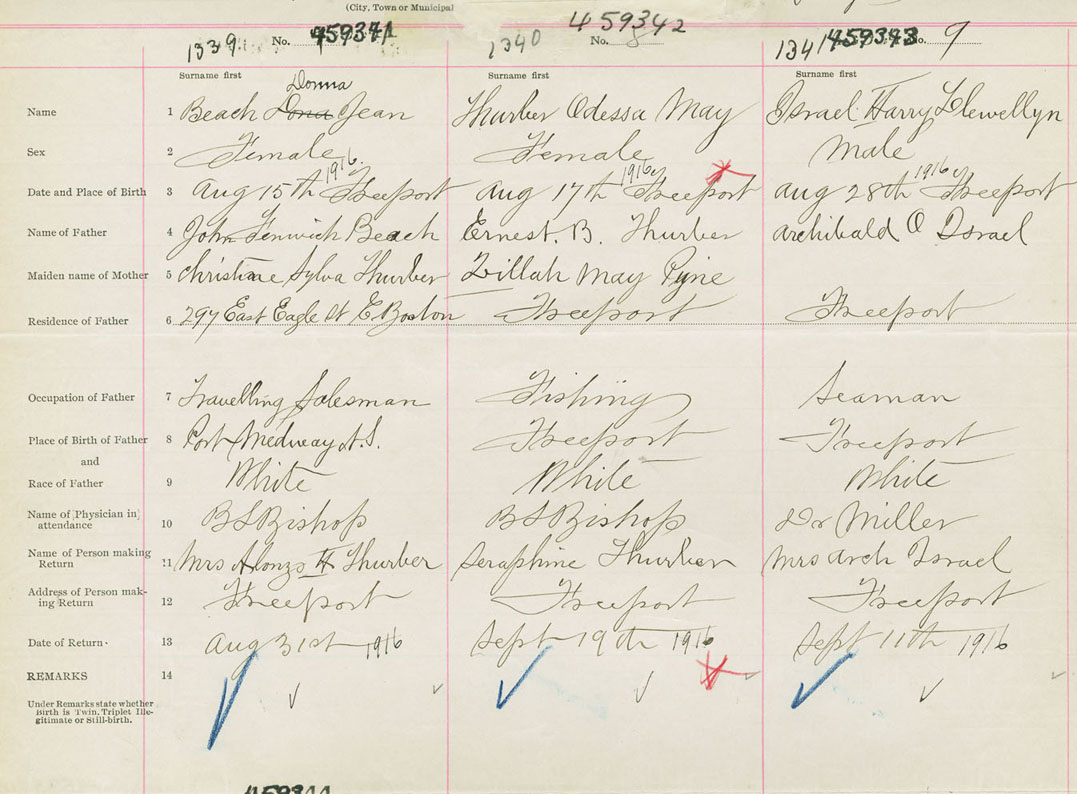 (City, Town or Municipal
1339. No. 459341 1340 No. 459342 8 1341 459343 No. 9
Surname first Surname first Surname first
Donna
Name 1 Beach Dona Jean Thurber Odessa May Israel Harry Llewellyn
Sex 2 Female Female Male
1916 1916 1916
Date and Place of Birth 3 Aug 15th Freeport Aug 17th Freeport Aug 28th Freeport
Name of Father 4 John Fenwich Beach Ernest. B. Thurber Archibald O Israel
Maiden name of Mother 5 Christine Sylva Thurber Zillah May Pyne
Residence of Father 6 297 East Eagle St E. Boston Freeport Freeport
Occupation of Father 7 Travelling Salesman Fishing Seaman
Place of Birth of Father 8 Port Medway N.S. Freeport Freeport
and
Race of Father 9 White White White
Name of Physician in
attendance 10 B S Bishop B S Bishop Dr Miller
Name of Person making
Return 11 Mrs Alonzo H Thurber Seraphine Thurber Mrs Arch Israel
Address of Person mak-
ing Return 12 Freeport Freeport Freeport
Date of Return 13 Aug 31st 1916 Sept 19th 1916 Sept 11th 1916
REMARKS 14
Under Remarks state whether
Birth is Twin, Triplet Ille-
gitimate or Still-birth.